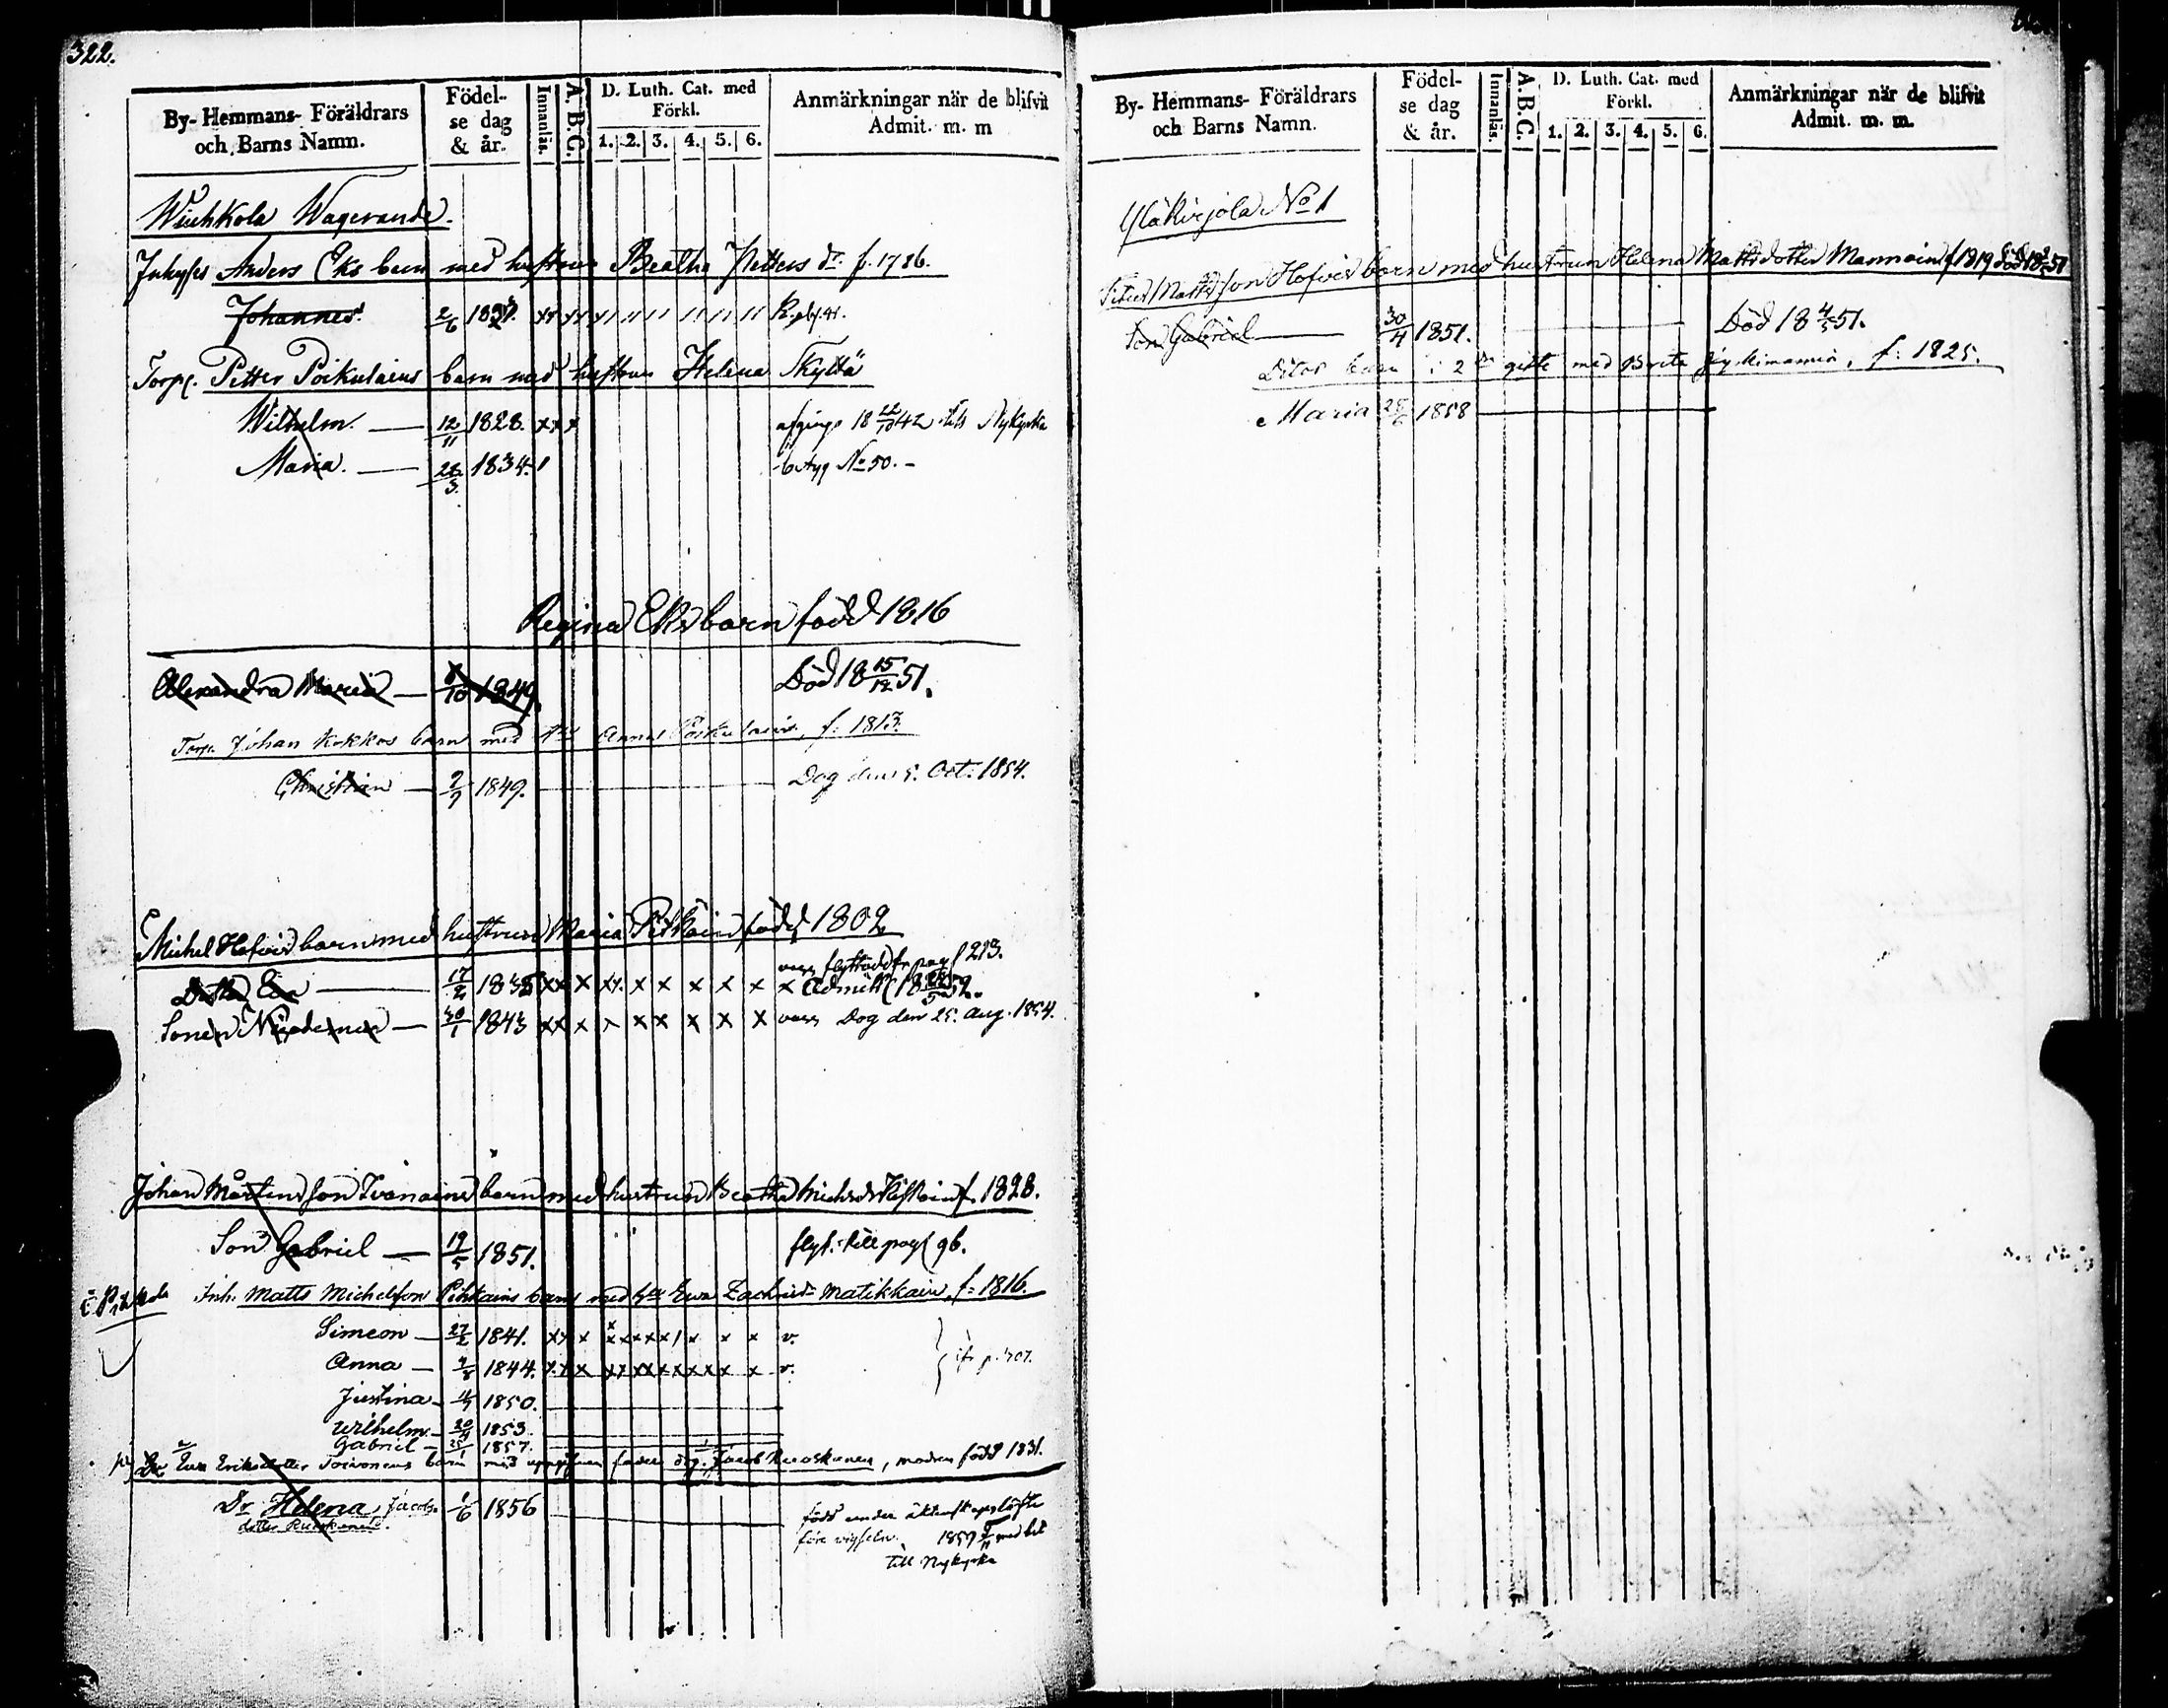 322.
By- Hemmans- Föräldrars och Barns Namn.
Födelse dag & år.
Innanläs.
A. B. C.
D. Luth. Cat. med Förkl.
1. 2. 3. 4. 5. 6.
Anmärkningar när de blifvit Admit. m. m
Wiehkola
Inhyses Anders Eks barn med hustrun Beatha Petters dr. f. 1786.
Johannes 2/6
Torp. Petter Poikulains barn med hustrun Helena Skyttä
Wilhelm. 12/11 1828. x x x afgingo 18 22/10 42 till Nykyrka
Maria. 28/3 1834. betyg No 50.
Regina Eks barn född 1816
Alexandra Maria 1849. Död 18 15/12 51.
Torp. Johan Kokkos barn med Anna Poikulain, f. 1813.
Christian 1849. Dog den 5. Oct. 1854.
Michel Hofvis barn med hustrun Maria Pitkäin född 1802
flyttad fr. pag 213.
Dotter Eva 17/2 1835 x x x x x x x x x Admitt.
Sonen Nicodemus 30/1 1843 x x x x x x x x x Dog den 25. Aug. 1854.
Johan Mårtensson Ivanains barn med hustrun Beatha f. 1828.
Son Gabriel 19/5 1851. flyt. till pag 96.
Inh. Matts Michelsson Pihkains barn med Ewa Zachrisdr Matikkain, f. 1816.
Simeon 27/2 1841. x x x x x x x x x x x v.
Anna 1844. x x x x x x x x x x x x v. p. 707.
Justina 1850.
Wilhelm 1853.
Gabriel 25/1 1857.
Ewa Eriksdotter Toivonens barn med uppgifven fader dr. Jacob Ruoskanen, modren född 1831.
Dr Helena, Jacobs dotter Ruoskanen. 1/6 1856 född under äktenskapslöfte
före wigseln. 1857 med bet.
till Nykyrka
By- Hemmans- Föräldrars och Barns Namn.
Födelse dag & år.
Innanläs.
A. B. C.
D. Luth. Cat. med Förkl.
1. 2. 3. 4. 5. 6.
Anmärkningar när de blifvit Admit. m. m.
Yläkirjola No 1
Petter Mattsson Hofvis barn med hustrun Helena Mattsdotter Mannoin f 1819
Son Gabriel 30/4 1851. Död 18 4/5 51.
Ditos barn i 2 gifte med Brita Jyskimannin, f. 1825.
Maria 1858